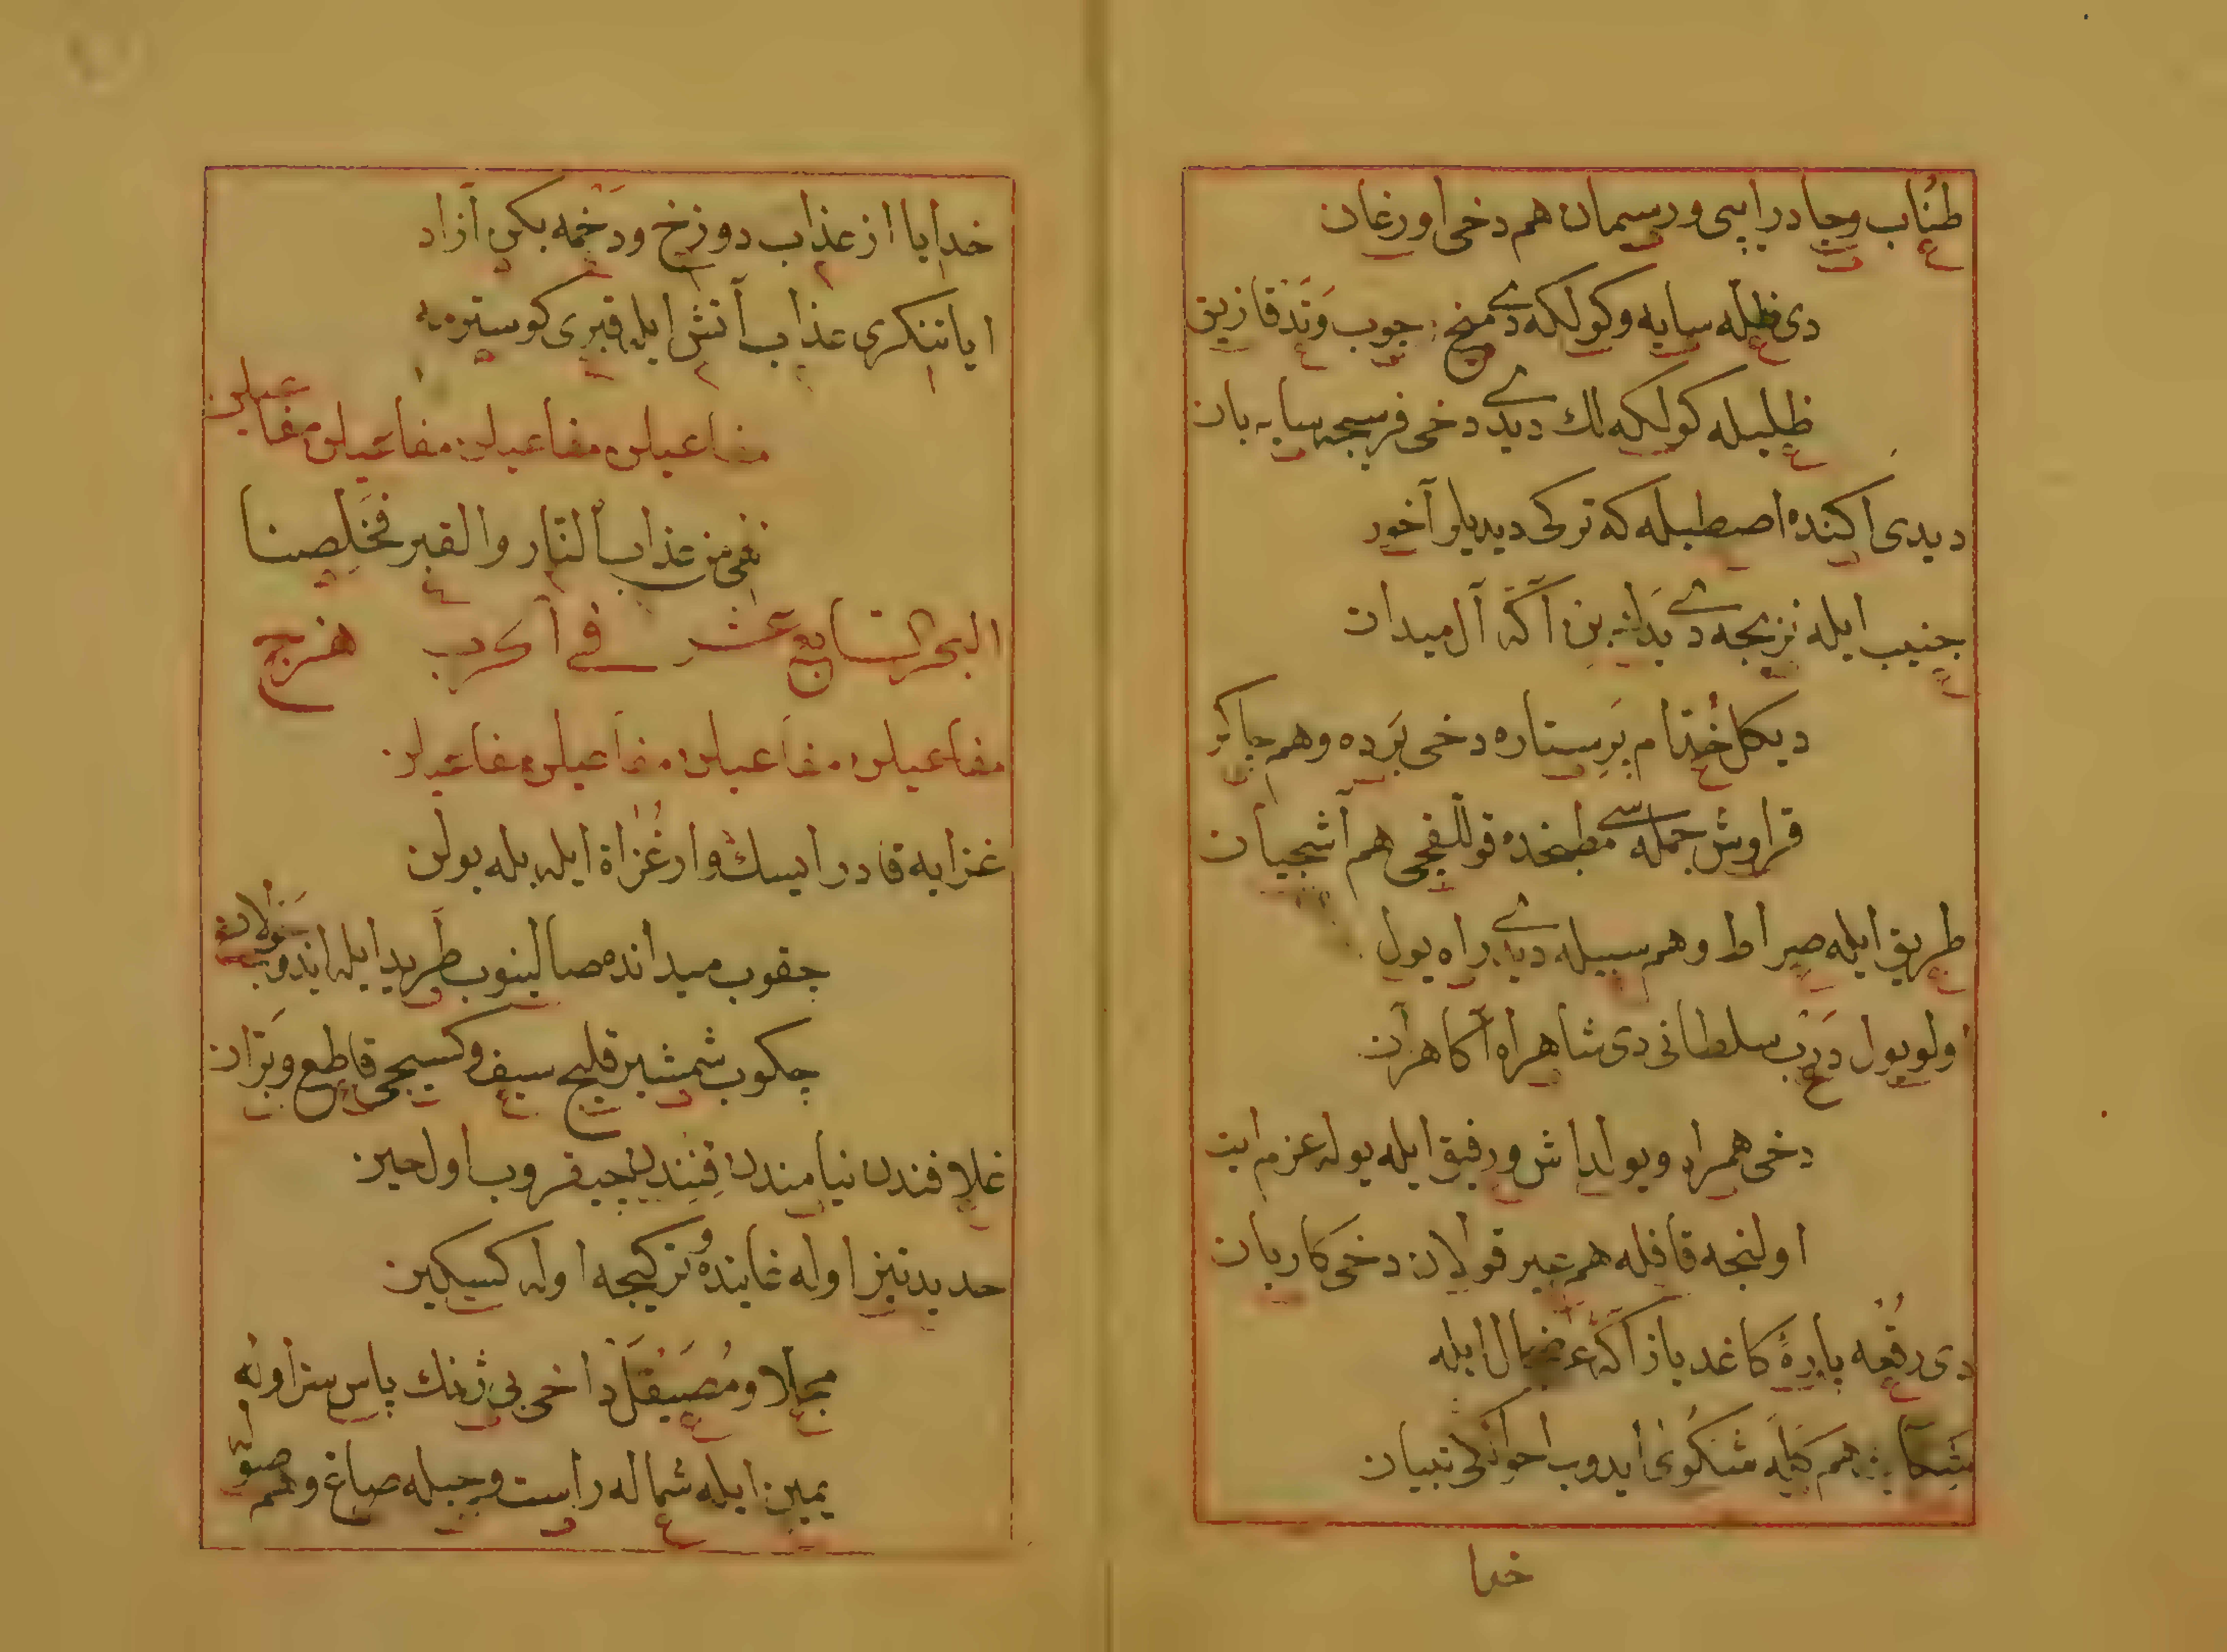 طناب و چادر ایپی و ریسمان هم دخی اورغان
دی ظله سایه و کولکه دی میخ چوب وتد قازین
ظلیله کولکه لك دیدی دخی فرسجه سایه بان
دیدی اکنده اصطبله که ترکی دیدیلر آخور
جنیب ایله نزیجه دی یداشین آکه آل میدان
دیکل ختام پرستاره دخی برده و هم چاکر
قراوش جمله سی مطبخده قوللقچی هم آشجیان
طریق ایله صراط و هم سبیله دی راه یول
اولو یول درب سلطانی دی شاهراه آکا هرآن
دخی همراه و یولداش و رفیق ایله یوله عزم ایت
اولنجه قافله هم عیر قولان دخی کاربان
دی رقعه پاره کاغد یاز آکه عرضحال ایله
هم کله شکوئ ایدوب احوالکی تبیان
خدا
خدایا از عذاب دوزخ و دخمه بکن آزاد
ایا تنکری عذاب آتش ایله قبری کوسترمه
مفاعیلن مفاعیلن مفاعیلن مفاعیلن
نفی من عذاب النار والقبر فخلصنا
البحر السابع عشر فی آکرب هزج
مفاعیلن مفاعیلن مفاعیلن مفاعیلن
غزایه قادر ایسك وار غزاة ایله بله یولن
چقوب میدانده صالینوب طرید ایله ایدوب جولان
چکوب شمشیر قلیج سیف و کسیجی قاطع و بران
غلافندن نیامندن قنندن چیقروب اول حین
حدید تیز اوله غاینده و تز کیجه اوله کسکین
مجلا و مصیقل داخی بی ژنك پاس سز اوله
یمین ایله شماله راست و چپله صاغ و هم صول